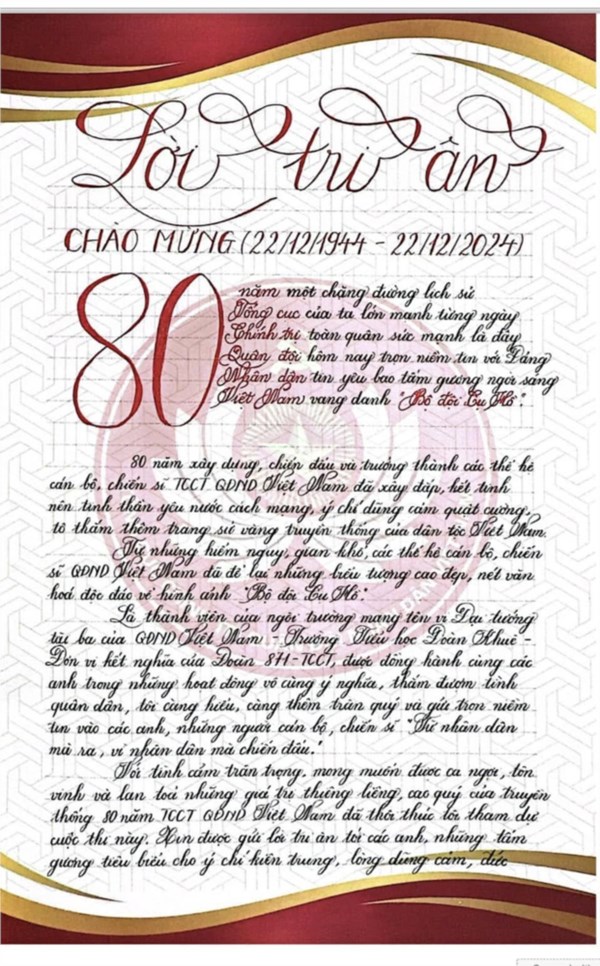 Lời tri ân
CHÀO MỪNG (22/12/1944 - 22/12/2024)
80 năm một chặng đường lịch sử
Tổng cục của ta lớn mạnh từng ngày
Chính trị toàn quân sức mạnh là đây
Quân đội hôm nay trọn niềm tin với Đảng
Nhân dân tin yêu bao tấm gương ngời sáng
Việt Nam vang danh "Bộ đội Cụ Hồ".
80 năm xây dựng, chiến đấu và trưởng thành các thế hệ
cán bộ, chiến sĩ TCCT QĐND Việt Nam đã xây đắp, kết tinh
nên tinh thần yêu nước cách mạng, ý chí dũng cảm quật cường,
tô thắm thêm trang sử vàng truyền thống của dân tộc Việt Nam.
Từ những hiểm nguy, gian khó, các thế hệ cán bộ, chiến
sĩ QĐND Việt Nam đã để lại những biểu tượng cao đẹp, nét văn
hoá độc đáo về hình ảnh "Bộ đội Cụ Hồ".
Là thành viên của ngôi trường mang tên vị Đại tướng
tài ba của QĐND Việt Nam - Trường Tiểu học Đoàn Khuê -
Đơn vị kết nghĩa của Đoàn 871-TCCT, được đồng hành cùng các
anh trong những hoạt động vô cùng ý nghĩa, thấm đượm tình
quân dân, tôi càng hiểu, càng thêm trân quý và gửi trọn niềm
tin vào các anh, những người cán bộ, chiến sĩ "Từ nhân dân
mà ra, vì nhân dân mà chiến đấu."
Với tình cảm trân trọng, mong muốn được ca ngợi, tôn
vinh và lan toả những giá trị thiêng liêng, cao quý của truyền
thống 80 năm TCCT QĐND Việt Nam đã thôi thúc tôi tham dự
cuộc thi này. Xin được gửi lời tri ân tới các anh, những tấm
gương tiêu biểu cho ý chí kiên trung, lòng dũng cảm, đức